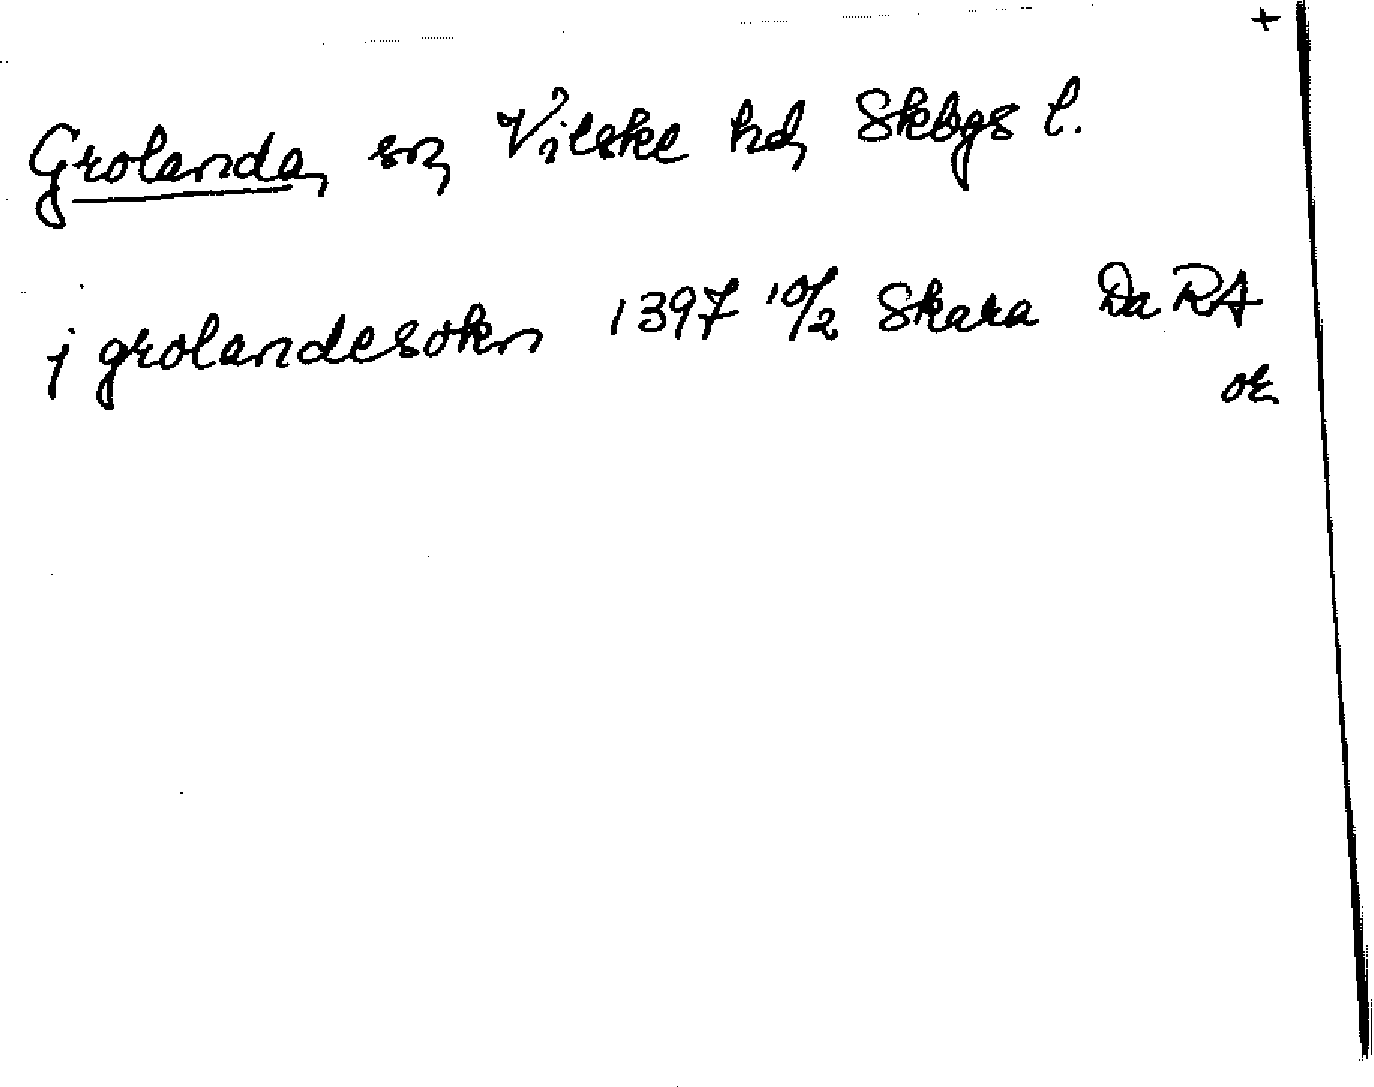 +
Grolanda, sn, Vilske hd, Skbgs l.
j grolandesokn 1397 10/2 Skara Da RA
or